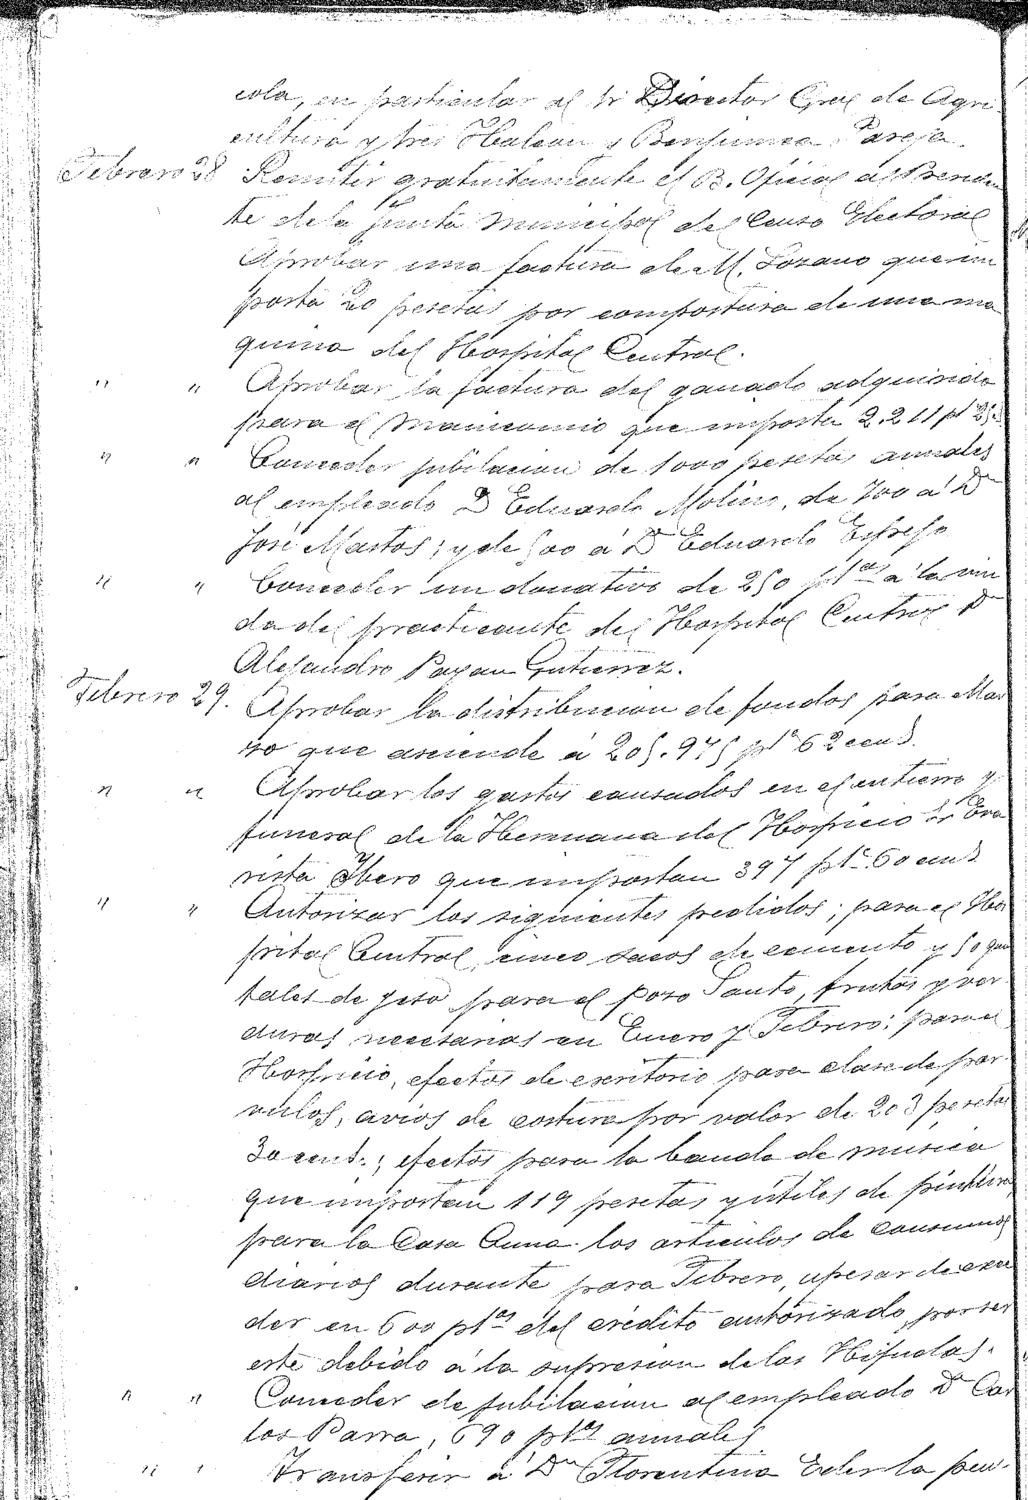 cola, en particular al Sr Director Gral de Agri-
cultura y tres Halcon y Benjumea Pareja.
Febrero 28 Remitir gratuitamente el B. Oficial al Presiden
te de la Junta Municipal del Censo Electoral
Aprobar una factura de M. Lozano que im
porta 20 pesetas por compostura de una ma
quina del Hospital Central.
" " Aprobar la factura del ganado adquirido
para el Manicomio que importa 2.211 pts 25
" " Conceder jubilacion de 1000 pesetas anuales
al empleado D Eduardo Molino, de 700 á Dn
José Martos; y de 500 á Dn Eduardo Espejo
" " Conceder un donativo de 250 ptas á la viu
da del practicante del Hospital Central Dn
Alejandro Payan Gutierrez.
Febrero 29. Aprobar la distribucion de fondos para Mar
zo que asciende á 205.975 pts 62 cents.
" " Aprobar los gastos causados en el entierro y
funeral de la Hermana del Hospicio Sr Eva
rista Ybero que importan 397 pts 60 cents
" " Autorizar los siguientes pedidos; para el Hos
pital Central, cinco sacos de cemento y 50 quin
tales de yeso para el pozo Santo, frutas y ver
duras necesarias en Enero y Febrero; para el
Hospicio, efectos de escritorio para clase de par
vulos, avios de costura por valor de 203 pesetas
30 cents.; efectos para la banda de musica
que importan 119 pesetas y útiles de pintura
para la Casa Cuna los articulos de consumos
diarios durante para Febrero, apesar de exce
der en 600 ptas del crédito autorizado, por ser
este debido á la supresion de las Hijuelas.
" " Conceder de jubilacion al empleado Dn Car
los Parra, 690 ptas anuales
" " Transferir á Dn Florentina Eder la pen-